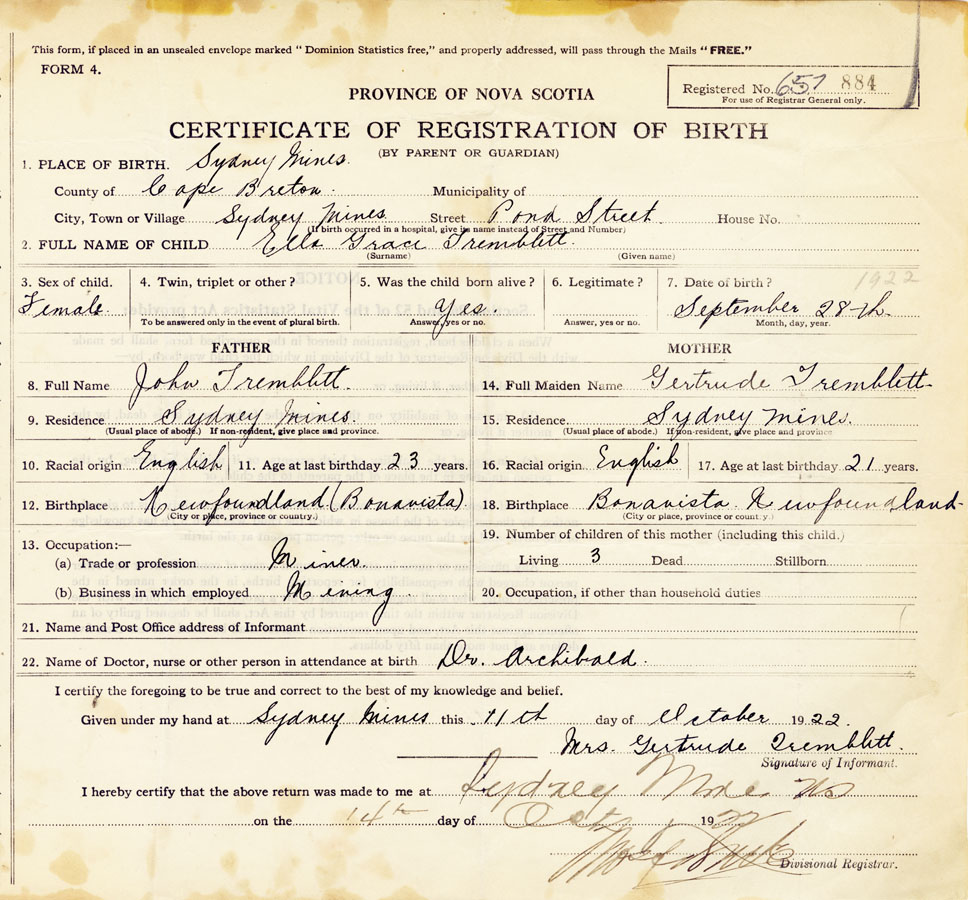 This form, if placed in an unsealed envelope marked "Dominion Statistics free," and properly addressed, will pass through the Mails "FREE."
FORM 4.
Registered No. 657 884
For use of Registrar General only.
PROVINCE OF NOVA SCOTIA
CERTIFICATE OF REGISTRATION OF BIRTH
(BY PARENT OR GUARDIAN)
1. PLACE OF BIRTH. Sydney Mines.
County of Cape Breton. Municipality of
City, Town or Village Sydney Mines Street Pond Street. House No.
(If birth occurred in a hospital, give its name instead of Street and Number)
2. FULL NAME OF CHILD Ella Grace Tremblett.
(Surname) (Given name)
3. Sex of child. 4. Twin, triplet or other? 5. Was the child born alive? 6. Legitimate? 7. Date of birth? 1922
Female. Yes. September 28th.
To be answered only in the event of plural birth. Answer, yes or no. Answer, yes or no. Month, day, year.
FATHER MOTHER
8. Full Name John Tremblett. 14. Full Maiden Name Gertrude Tremblett
9. Residence Sydney Mines. 15. Residence. Sydney Mines.
(Usual place of abode.) If non-resident, give place and province. (Usual place of abode.) If non-resident, give place and province
10. Racial origin English 11. Age at last birthday 23 years. 16. Racial origin English 17. Age at last birthday 21 years.
12. Birthplace Newfoundland (Bonavista). 18. Birthplace Bonavista. Newfoundland
(City or place, province or country.) (City or place, province or country.)
13. Occupation:— 19. Number of children of this mother (including this child.)
(a) Trade or profession Miner. Living 3 Dead Stillborn
(b) Business in which employed Mining. 20. Occupation, if other than household duties
21. Name and Post Office address of Informant
22. Name of Doctor, nurse or other person in attendance at birth Dr. Archibald.
I certify the foregoing to be true and correct to the best of my knowledge and belief.
Given under my hand at Sydney Mines this 11th day of October 1922.
Mrs. Gertrude Tremblett.
Signature of Informant.
I hereby certify that the above return was made to me at Sydney Mines NS
on the 14th day of Oct 1922
Divisional Registrar.